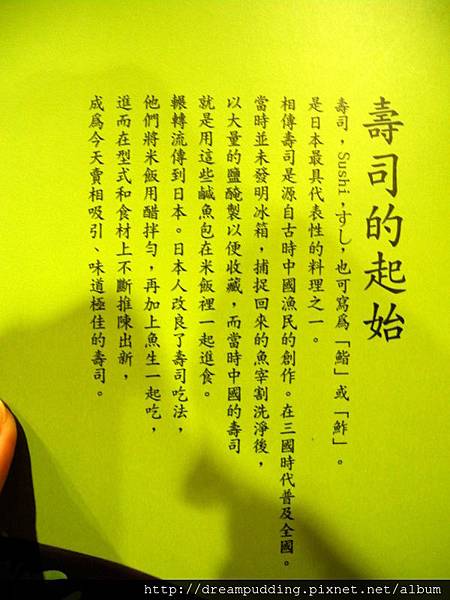 壽司的起始
壽司，Sushi，すし，也可寫為「鮨」或「鮓」。
是日本最具代表性的料理之一。
相傳壽司是源自古時中國漁民的創作。在三國時代普及全國。
當時並未發明冰箱，捕捉回來的魚宰割洗淨後，
以大量的鹽醃製以便收藏，而當時中國的壽司
就是用這些鹹魚包在米飯裡一起進食。
輾轉流傳到日本。日本人改良了壽司吃法，
他們將米飯用醋拌勻，再加上魚生一起吃，
進而在型式和食材上不斷推陳出新，
成為今天賣相吸引、味道極佳的壽司。
http://dreampudding.pixnet.net/album